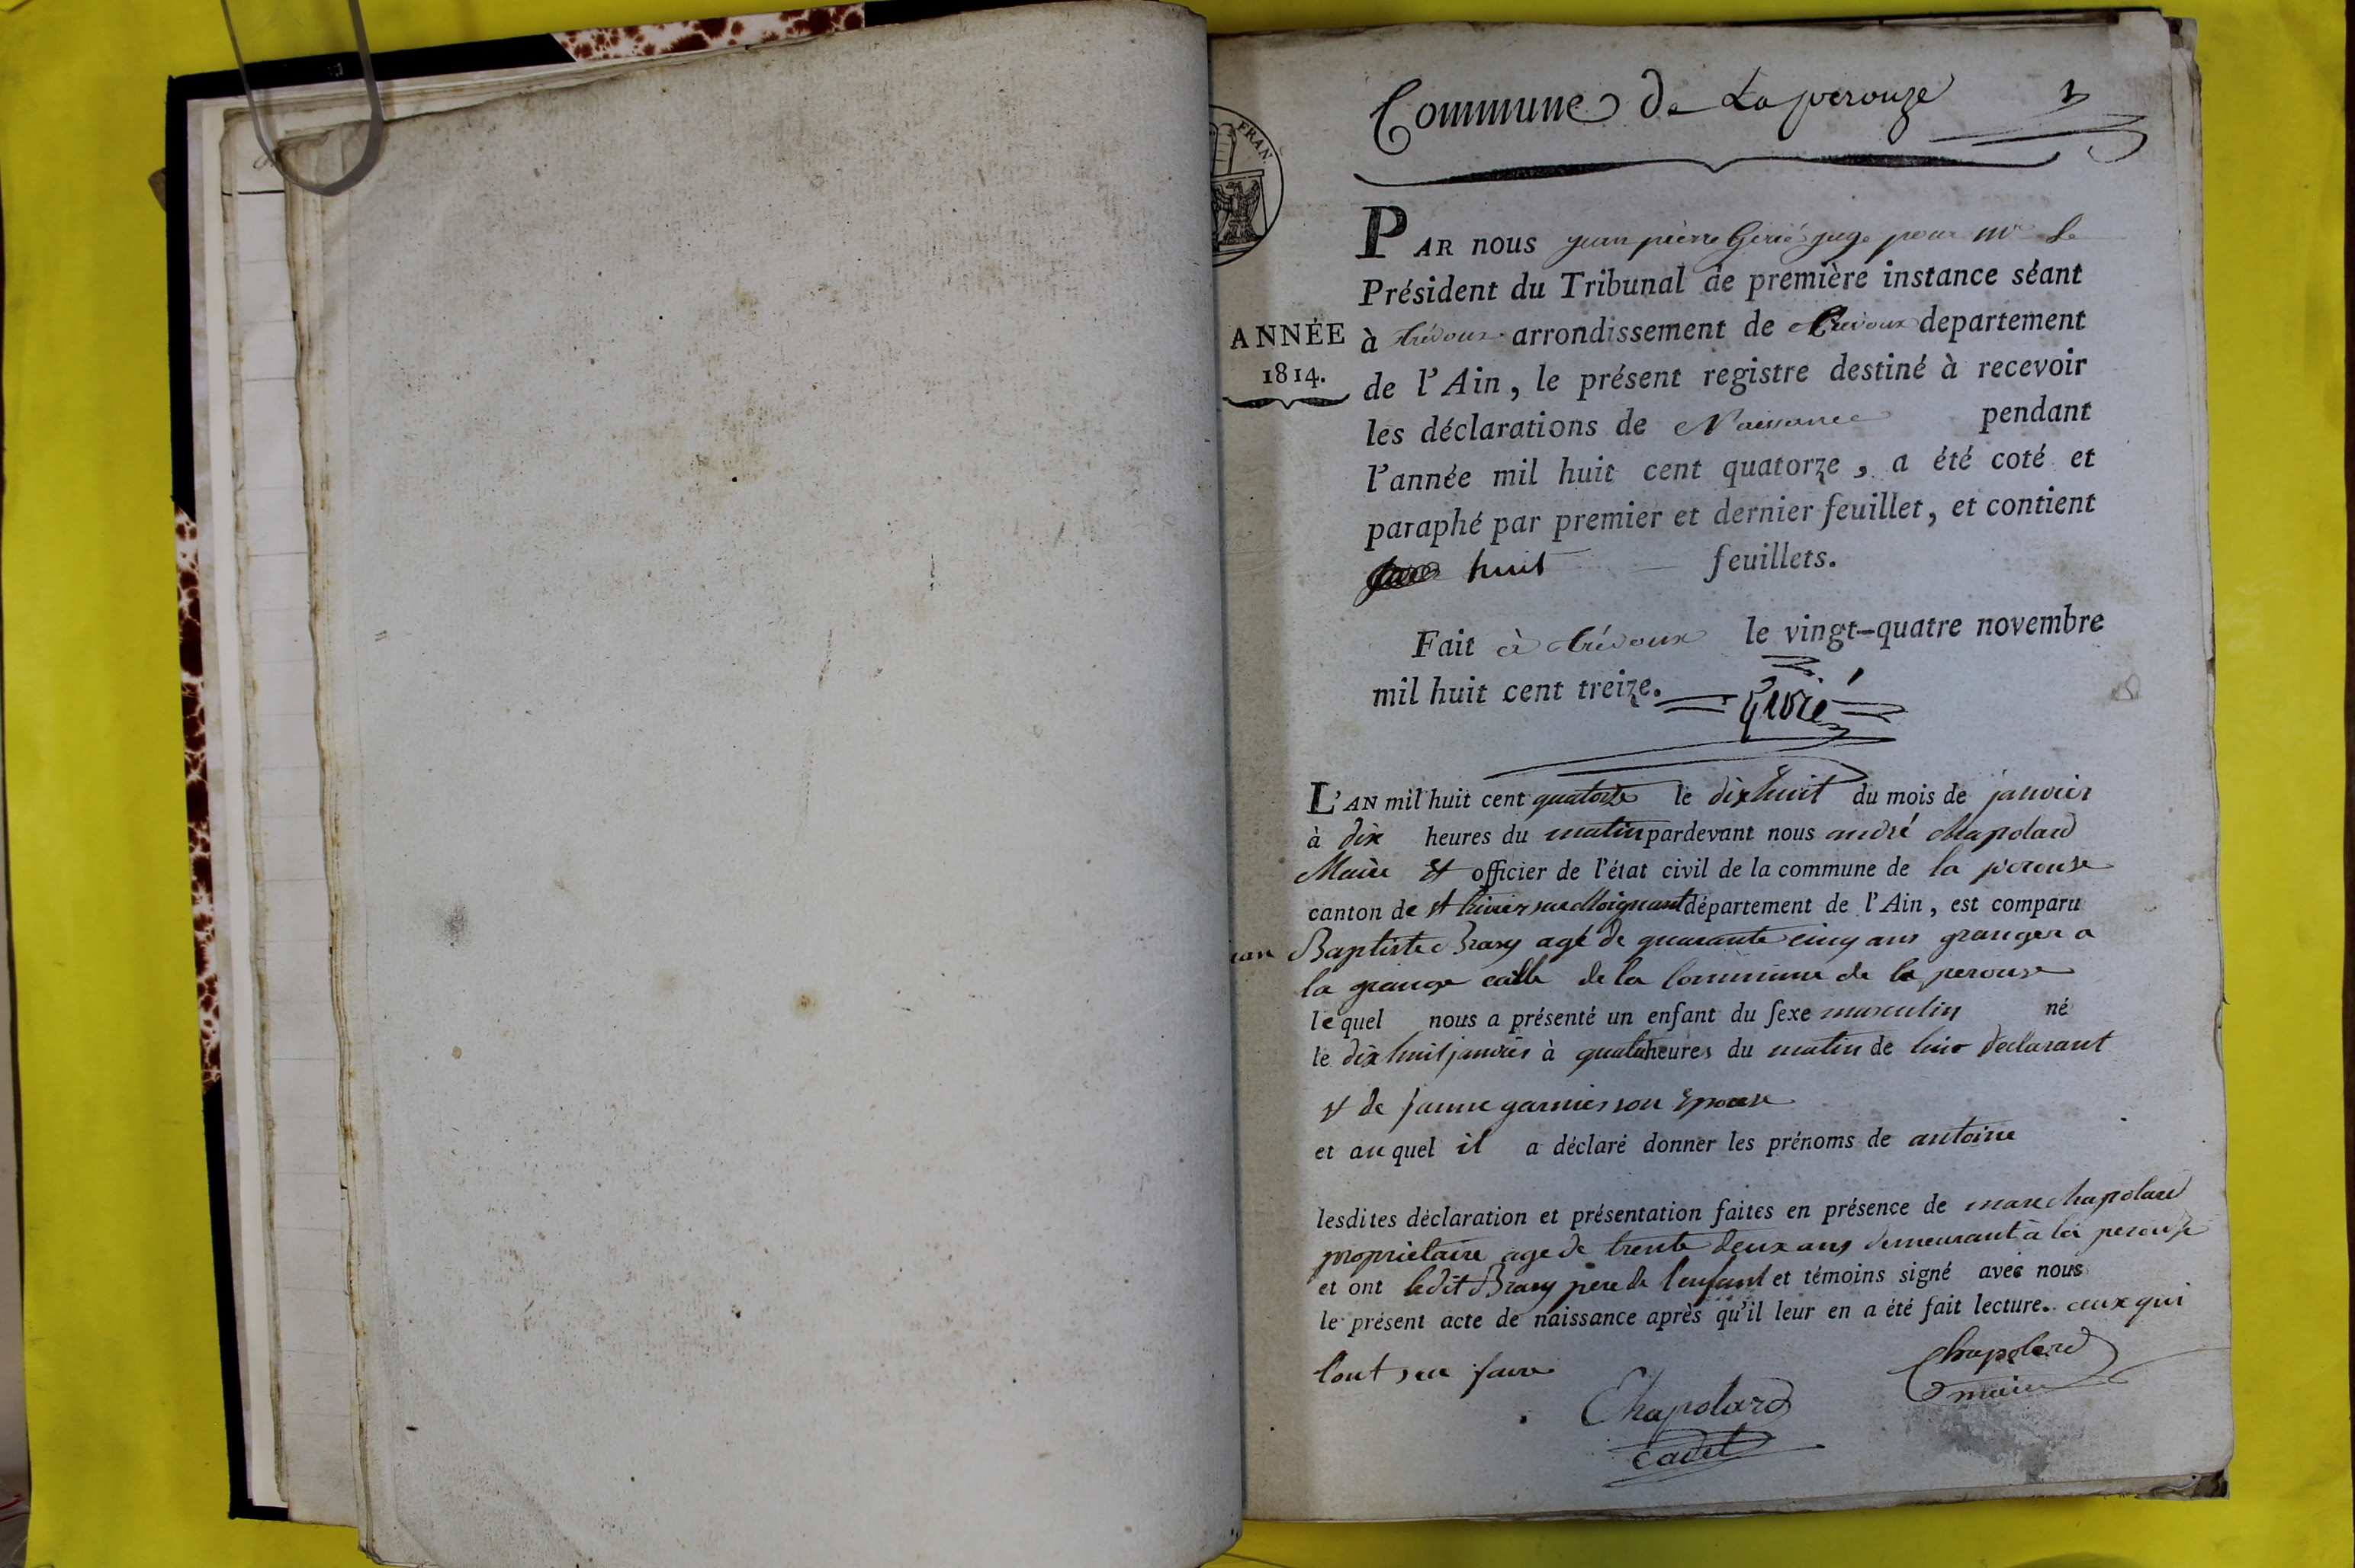 Commune de Laperouze 1
FRAN.
PAR nous jean pierre Givié juge pour Mr Le
Président du Tribunal de première instance séant
à trévoux arrondissement de trévoux departement
de l'Ain, le présent registre destiné à recevoir
les déclarations de Naissance pendant
l'année mil huit cent quatorze, a été coté et
paraphé par premier et dernier feuillet, et contient
huit feuillets.
ANNÉE
1814.
Fait à trévoux le vingt-quatre novembre
mil huit cent treize. Givié
L'AN mil huit cent quatorze le dixhuit du mois de janvier
à dix heures du matin pardevant nous andré Chapolard
Maire et officier de l'état civil de la commune de la perouse
canton de st trivier sur Moignant département de l'Ain, est comparu
jean Baptiste Brazy agé de quarante cinq ans granger a
la grange de la Commune de la perouse
lequel nous a présenté un enfant du sexe masculin né
le dix huit janvier à quatre heures du matin de lui declarant
et de janne garnier son Epouse
et auquel il a déclaré donner les prénoms de antoine
lesdites déclaration et présentation faites en présence de marc chapolard
proprietaire age de trente deux ans demeurant à la perouse
et ont ledit Brazy pere de l'enfant et témoins signé avec nous
le présent acte de naissance après qu'il leur en a été fait lecture. ceux qui
l'ont seu faire
Chapolard
maire
Chapolard
cadet